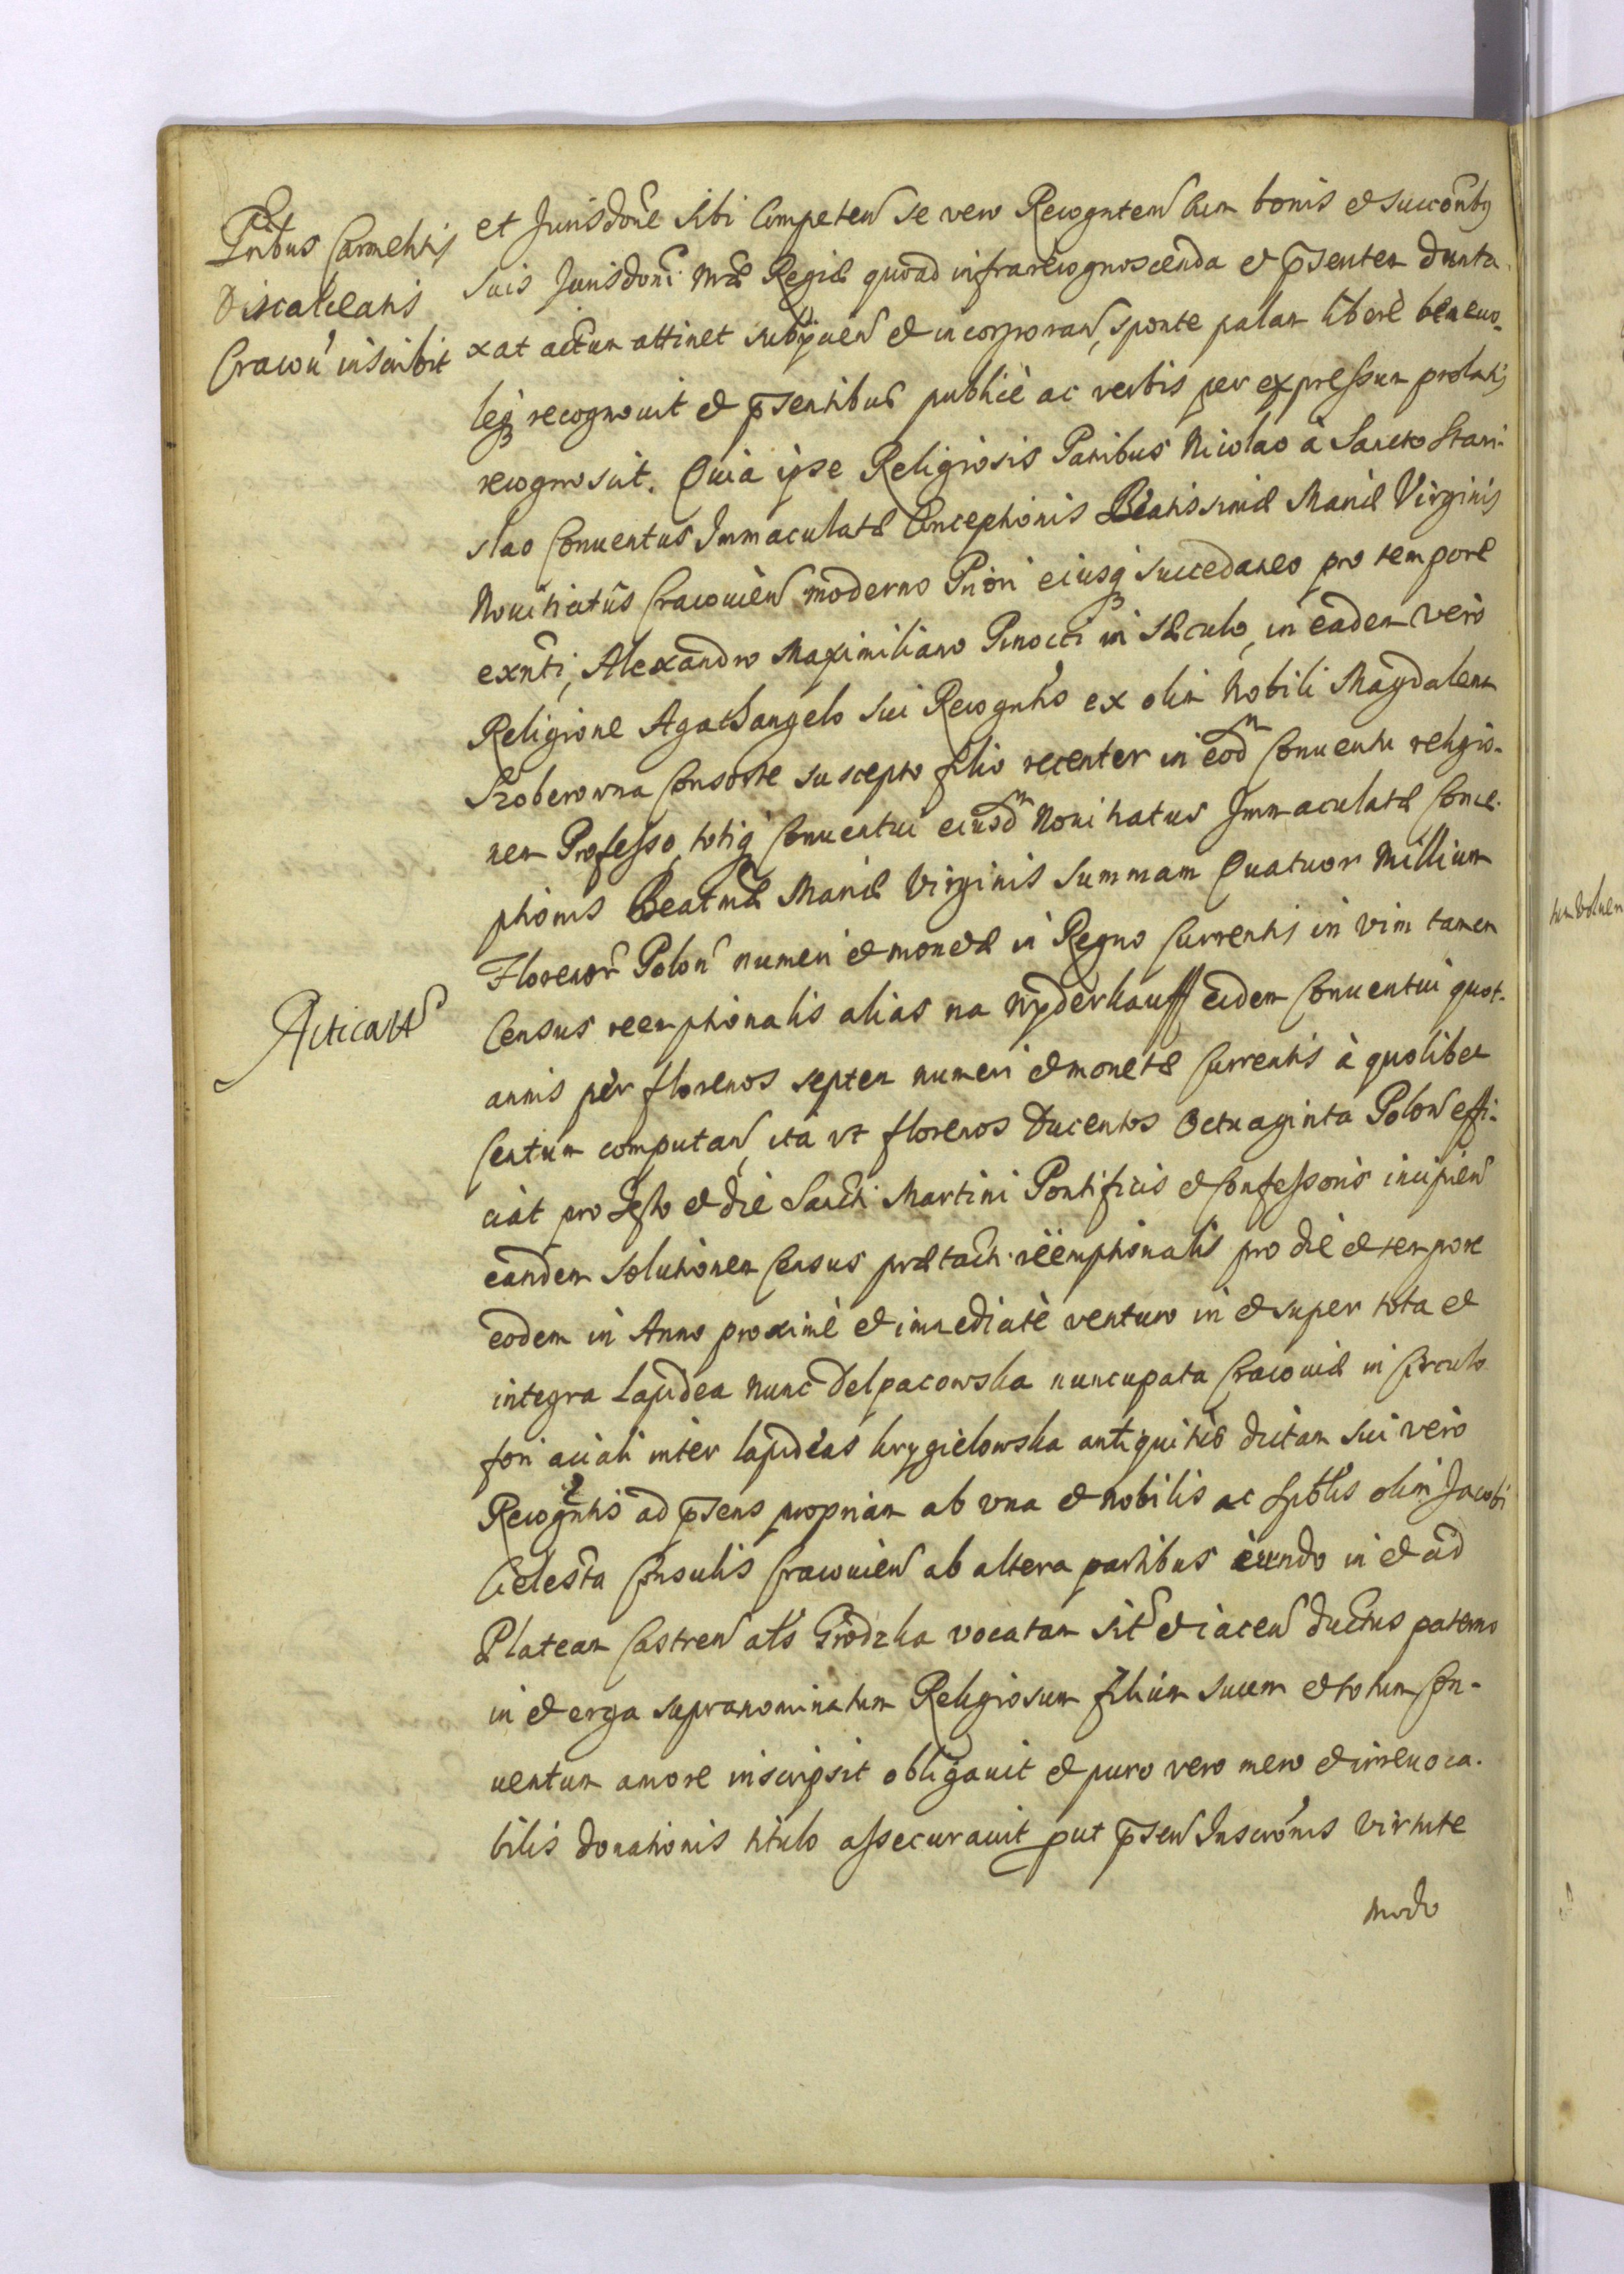 Pribus Carmelitis
Discalceatis
Cracoū inscribit
et Jurisdone sibi Competen se vero Recognten cum bonis et succoribq
suis Jurisdoni Mtæ Regiæ quoad infrarecognoscenda et p̄sentem dunta
xat actum attinet subÿcien et incorporan, sponte palam liberè beneuo-
leq3 recognouit et p̄sentibus publicè ac verbis per expressum prolatis
recognoscit. Quia ipse Religiosis Patribus Nicolao à Sancto Stani-
slao Conuentus Immaculatæ Conceptionis Beatissimæ Mariæ Virginis
Nouitiatûs Cracouien moderno Priori eiusq3 succedaneo pro tempore
exnti, Alexandro Maximiliano Pinocci in sæculo, in eadem verò
Religione Agathangelo sui Recogntis ex olim Nobili Magdalena
Szoberowna Consorte suscepto filio recenter in eodm Conuentu religio-
nem Professo, totiq3 Conuentui eiusdm Nouitiatus Immaculatæ Conce-
ptionis Beatmæ Mariæ Virginis summam Quatuor Millium
Florenor Polon numeri et monetæ in Regno Currentis in vim tamen
Census reemptionalis alias na wyderkauff eidem Conuentui quot-
annis per florenos septem numeri et monetæ Currentis à quolibet
Centum computan, ita vt florenos Ducentos Octuaginta Polon effi-
ciat pro Festo et die Sancti Martini Pontificis et Confessoris incipien
eandem solutionem Census prætacti rëemptionalis pro die et tempore
eodem in Anno proximè et immediatè venturo in et super tota et
integra Lapidea nunc Delpacowska nuncupata Cracouiæ in Circulo
fori aciali inter lapideas krygielowska antiquitùs dictam sui verò
Recogntis ad p̄sens propriam ab vna et nobilis ac sptlis olim Jacobi
Celesta Consulis Cracouien ab altera partibus eundo in et ad
Plateam Castren als Grodzka vocatam sit et iacen ductus paterno
in et erga supranominatum Religiosum filium suum et totum Con-
uentum amore inscripsit obligauit et puro vero mero et irreuoca-
bilis donationis titulo assecurauit put p̄sen Inscronis virtute
modo
Acticat